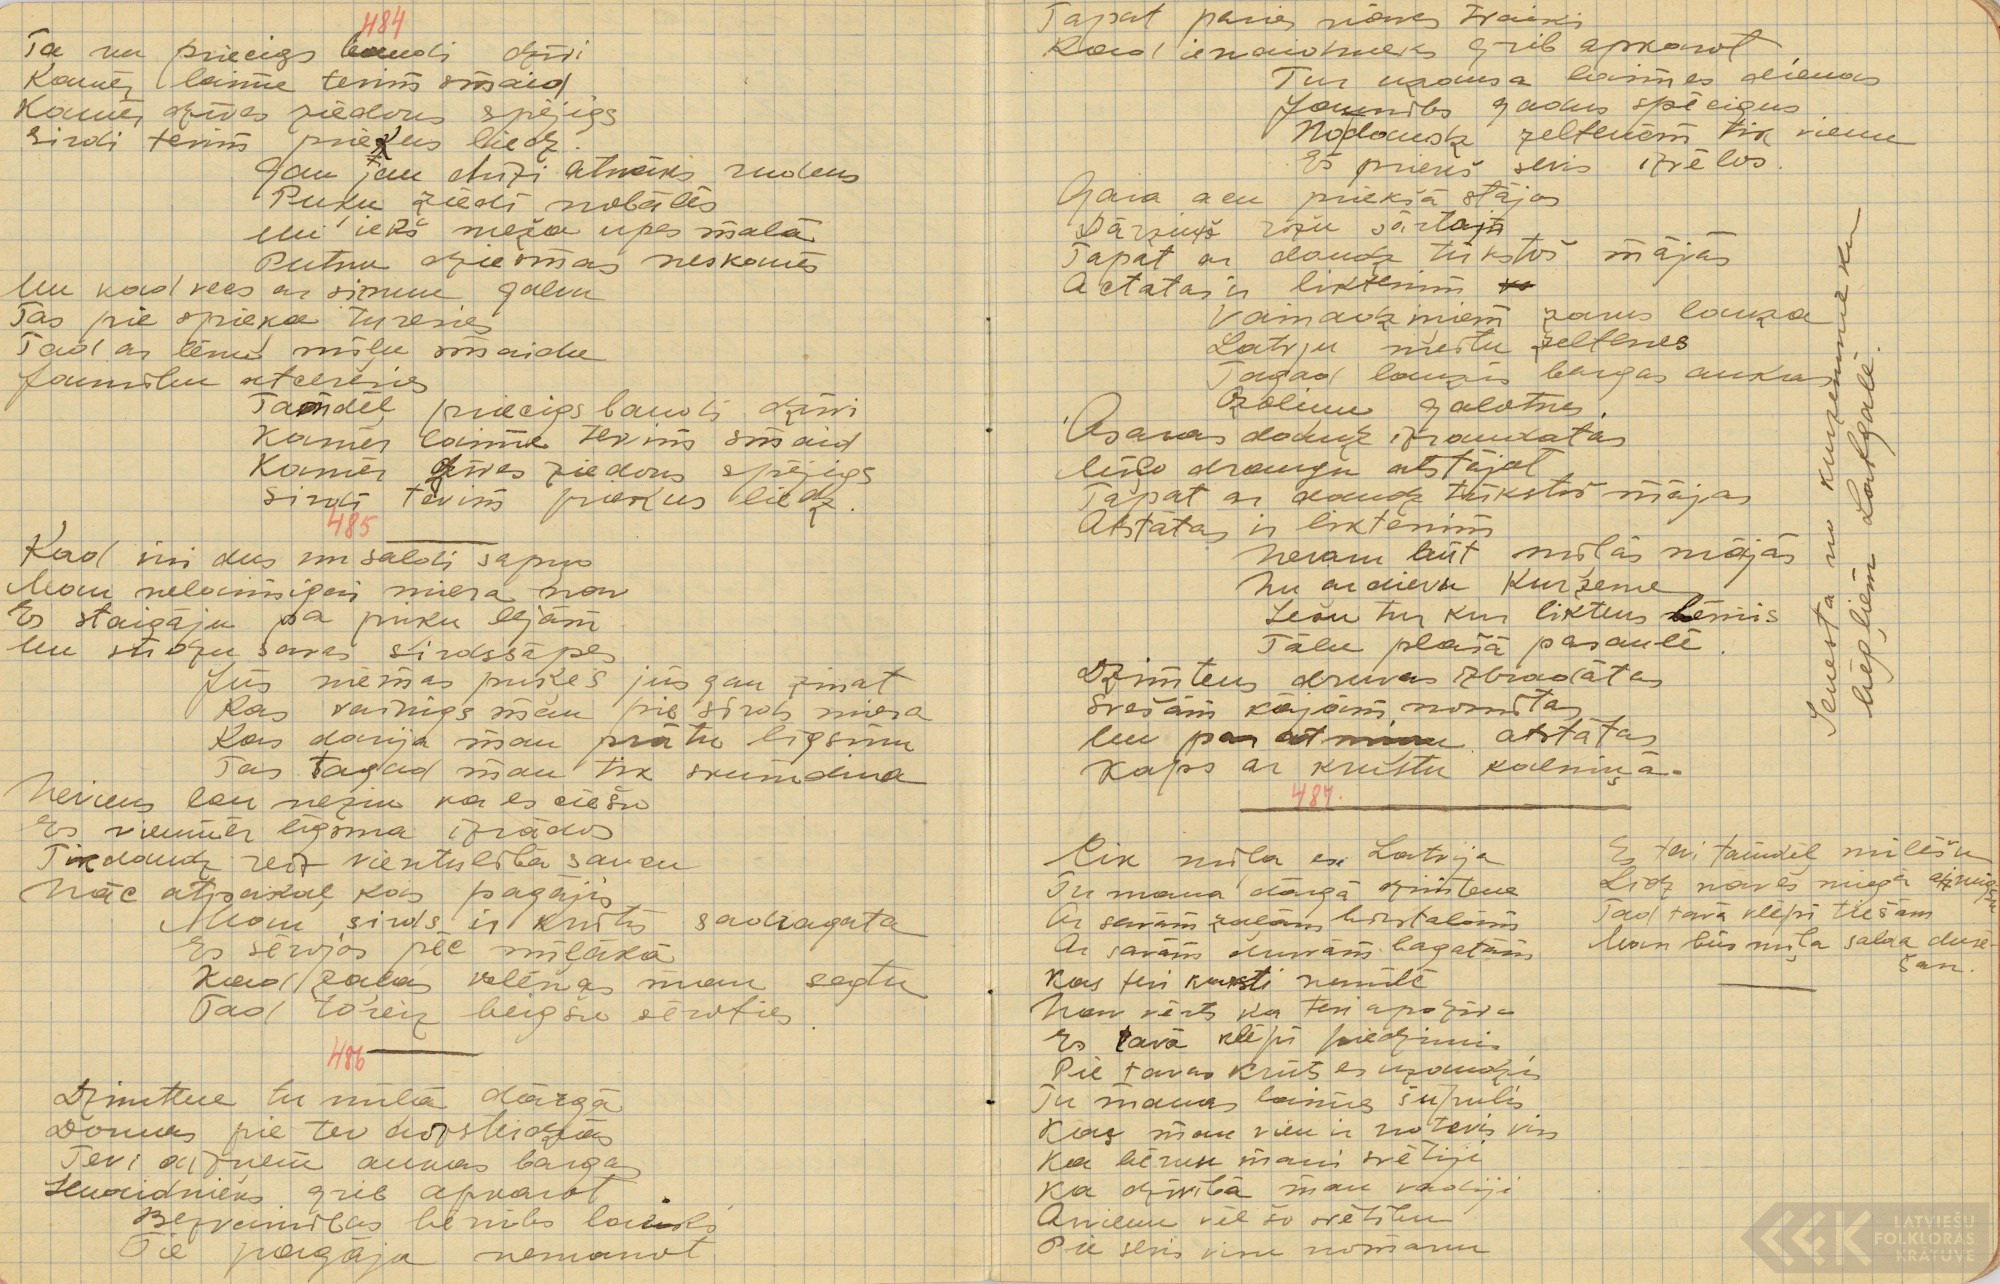 484
Ta nu priecigs baudi dzīvi
Kamēr laime tevim smaid
Kamēr dzīves ziedons spējigs
Sirdi tevim priekus liedz.
Gan jau drīzi atnāks rudens
Puķu ziedi nobālēs
Un iekš meža upes malā
Putnu dziesmas neskanēs
Un kad vecs ar sirmu galvu
Tas pie spieķa tveresies
Tad ar lēnu mīļu smaidu
Jaunību atceresies
Tamdēļ priecigs baudi dzīvi
Kamēr laime tevim smaid
Kamēr dzīves ziedons spējigs
Sirdi tevim priekus liedz.
485
Kad visi dus un saldi sapņo
Man nelaimigai miera nav
Es staigāju pa puķu lejām
Un sūdzu savas sirdssāpes
Jūs mēmas puķes jūs gan zinat
Kas vainigs man pie sirds miera
Kas darija man prātu līgsmu
Tas tagad man tik skumdina
Neviens lau nezin ka es ciešu
Es vienmēr līgsma izrādos
Tik daudz reiz vientulībā saucu
Nāc atpakaļ kas pagājis
Man sirds ir krūtīs sadragata
Es sērojos pēc mīļākā
Kad zaļas velēnas man segtu
Tad toreiz beigšu sēroties.
486
Dzimtene tu mīļā dārgā
Domas pie tev kavējās
Tevi aizņem aukas bargas
Ienaidnieks grib apkarot
Bezvainības bērnības laiks
Tie pagāja nemanot
Tapat paries nāves tvaiki
Kad ienaidnieks grib apkarot
Tur uzausa laimes dienas
Jaunības gadus spēcigus
Nodaudz zeltenēm tik vienu
Es priekš sevis izvēlos.
Gara acu priekšā stājas
Dārziņš rožu sārtajm
Tapat ar daudz tūkstoš mājās
Actatas ir liktenim
Vainadziņiem zarus lauza
Latvju meitu zeltenes
Tagad lauzis bargas aukas
Ozolinu galotnes.
Asaras daudz izraudatas
Mīļo draugu atstājot
Tapat ar daudz tūkstoš mājas
Atstātas ir liktenim
Nevaru būt mīļās mājās
Nu ardievu Kurzeme
Iešu tur kur liktens lēmis
Tālu plašā pasaulē.
Dzimtens druvas izbradātas
Svešām kājām nomītas
Un atstātas
Kaps ar krustu kalniņā.
Iesūta no kurzemnieku
bēgļiem Latgalē.
487.
Cik mīļa es Latvija
Tu mana dārgā dzimtene
Ar savām zaļām birztalām
Ar savām druvām bagatām
Kas tevi karsti nemīlē
Nav vērts ka tevi apdzīvo
Es tavā klēpī piedzimis
Pie tavas krūts es uzaudzis
Tu manas laimes šūpulis
Kas man vien ir no tevis viss
Ka bērnu mani svētiji
Ka dzīvībā man vadiji
Arvienu vēl šo svētību
Pie sevis visu nomanu
Es tevi tamdēļ mīlēšu
Līdz nāves miegā aizmigšu
Tad tavā klēpī tiešam
Man būs mīļa salda dusē-
šan.
LATVIEŠU
FOLKLORAS
KRĀTUVE